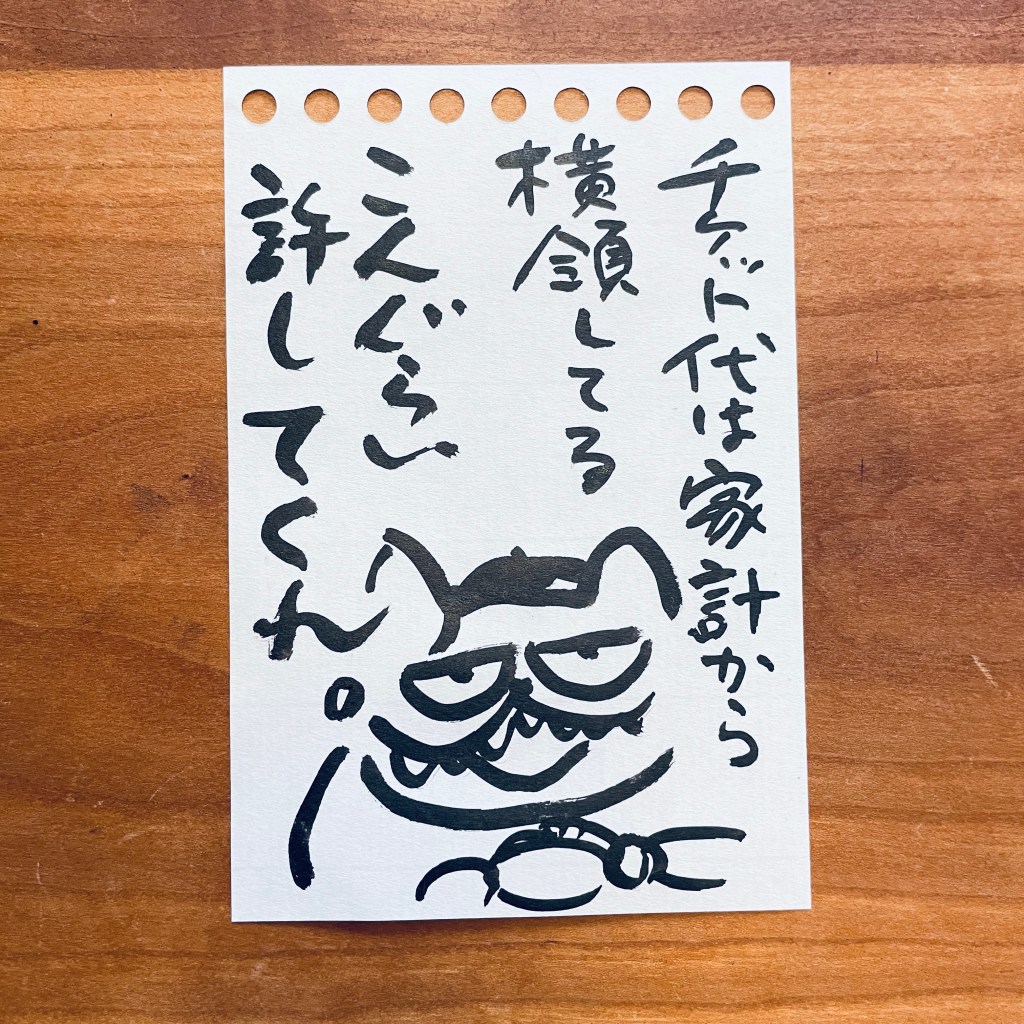 チケット代は家計から
横領してる
こんぐらい
許してくれ。